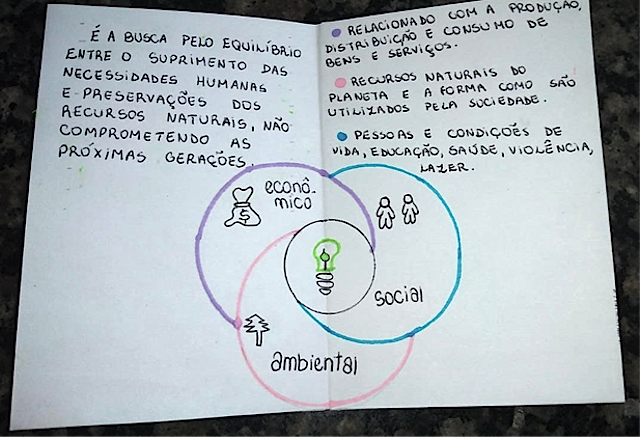 É A BUSCA PELO EQUILÍBRIO
ENTRE O SUPRIMENTO DAS
NECESSIDADES HUMANAS
E PRESERVAÇÕES DOS
RECURSOS NATURAIS, NÃO
COMPROMETENDO AS
PRÓXIMAS GERAÇÕES.
RELACIONADO COM A PRODUÇÃO,
DISTRIBUIÇÃO E CONSUMO DE
BENS E SERVIÇOS.
RECURSOS NATURAIS DO
PLANETA E A FORMA COMO SÃO
UTILIZADOS PELA SOCIEDADE.
PESSOAS E CONDIÇÕES DE
VIDA, EDUCAÇÃO, SAÚDE, VIOLÊNCIA,
LAZER.
econô-
mico
$
social
ambiental